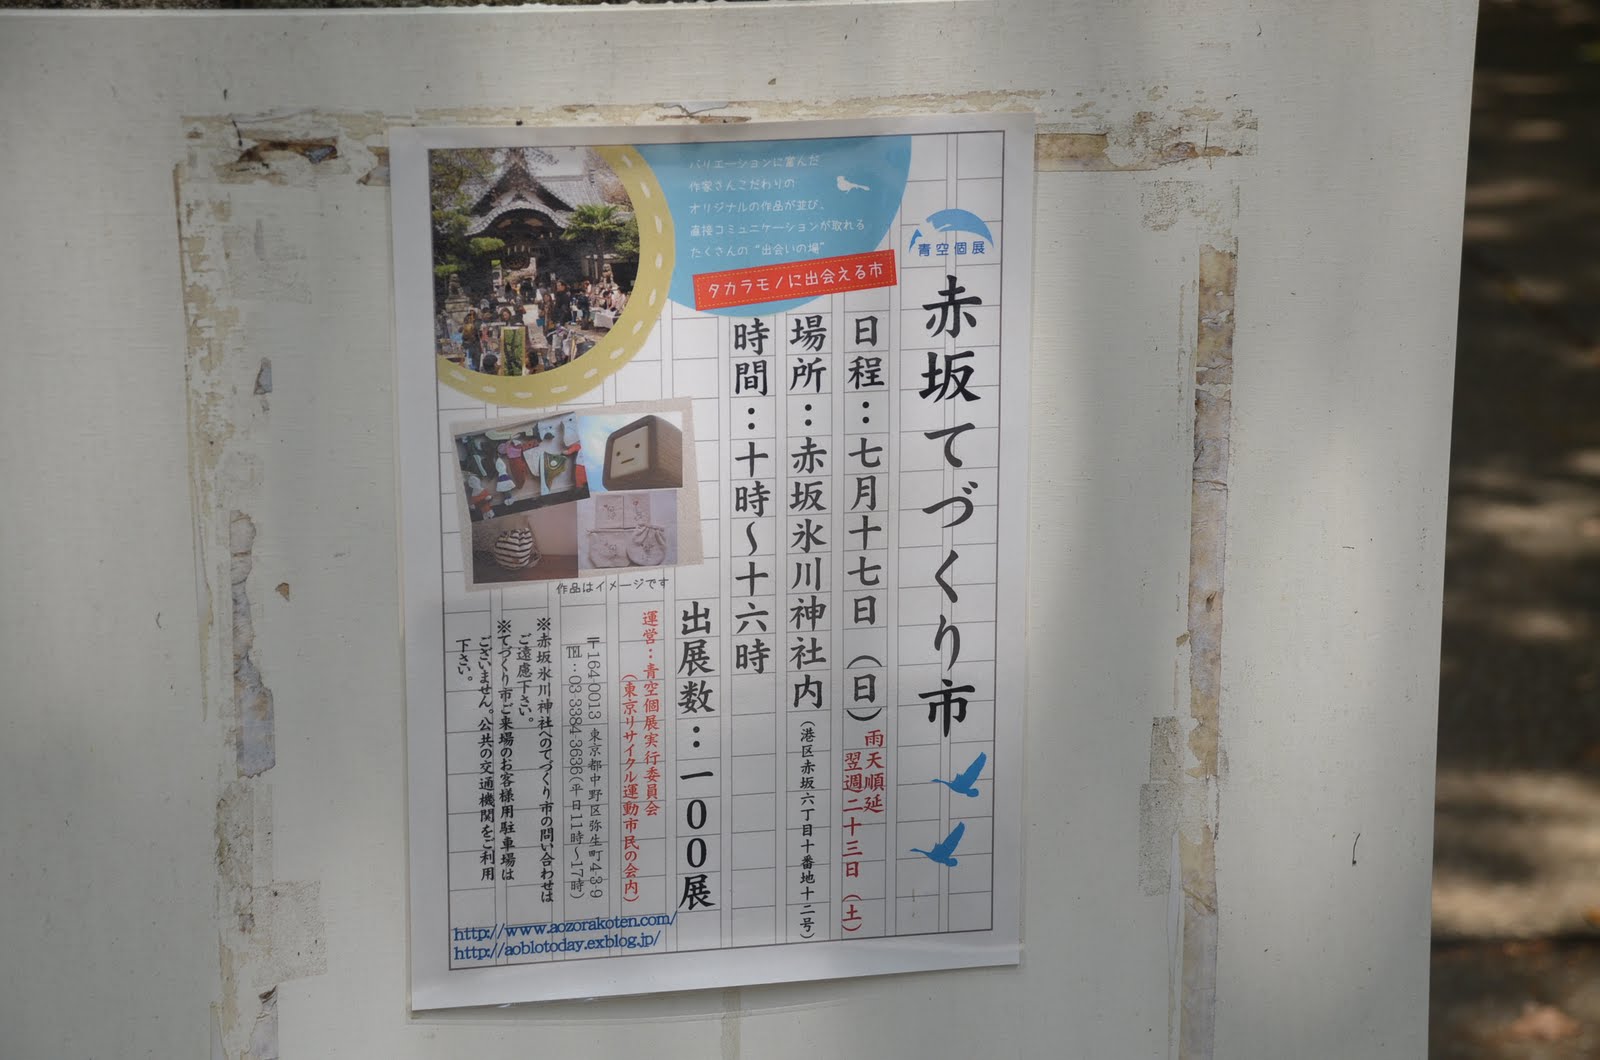 青空個展
赤坂てづくり市
バリエーションに富んだ
作家さんこだわりの
オリジナルの作品が並び、
直接コミュニケーションが取れる
たくさんの“出会いの場”
タカラモノに出会える市
日程：七月十七日（日）
雨天順延
翌週二十三日（土）
場所：赤坂氷川神社内（港区赤坂六丁目十番地十二号）
時間：十時～十六時
出展数：一００展
作品はイメージです
運営：青空個展実行委員会
（東京リサイクル運動市民の会内）
〒164-0013 東京都中野区弥生町4-3-9
℡：03-3384-3636（平日11時～17時）
※赤坂氷川神社へのてづくり市の問い合わせは
ご遠慮下さい。
※てづくり市ご来場のお客様用駐車場は
ございません。公共の交通機関をご利用
下さい。
http://www.aozorakoten.com/
http://aoblotoday.exblog.jp/